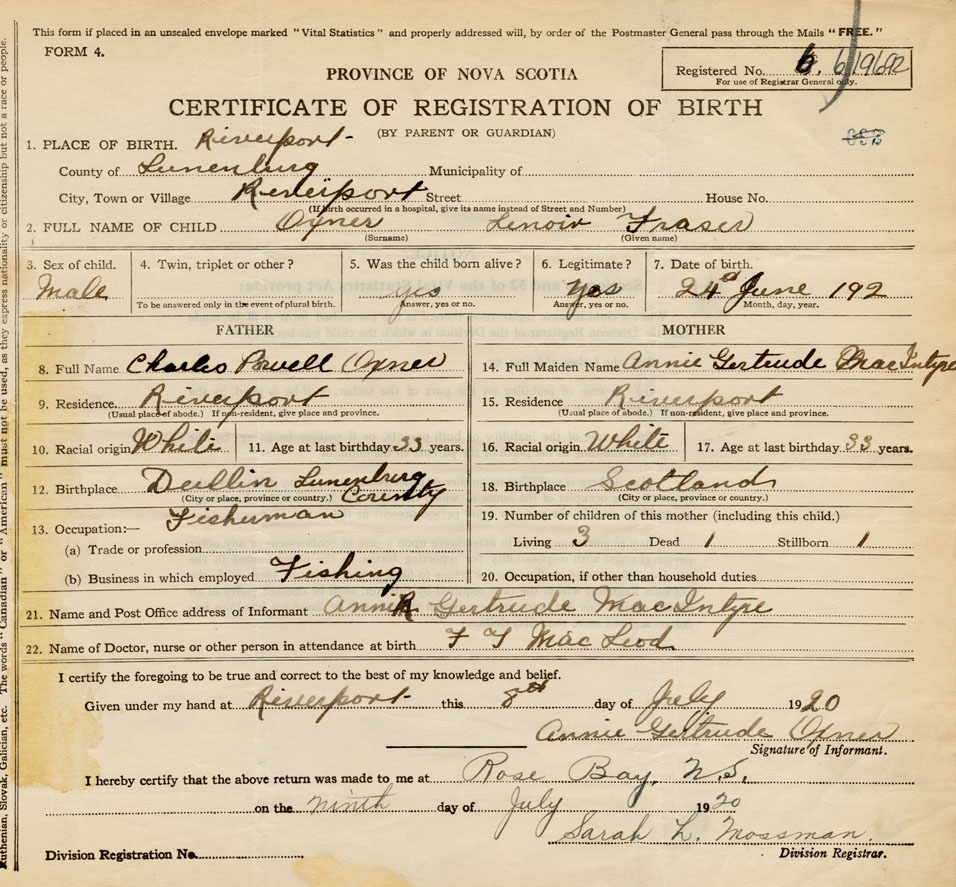 This form if placed in an unsealed envelope marked "Vital Statistics" and properly addressed will, by order of the Postmaster General pass through the Mails "FREE."
FORM 4.
Registered No. 6. 619692
For use of Registrar General only.
PROVINCE OF NOVA SCOTIA
CERTIFICATE OF REGISTRATION OF BIRTH
(BY PARENT OR GUARDIAN)
1. PLACE OF BIRTH. Riverport
County of Lunenburg Municipality of
City, Town or Village Riverport Street House No.
(If birth occurred in a hospital, give its name instead of Street and Number)
2. FULL NAME OF CHILD Oxner Lenoir Fraser
(Surname) (Given name)
3. Sex of child. 4. Twin, triplet or other? 5. Was the child born alive? 6. Legitimate? 7. Date of birth.
Male yes yes 24th June 192
To be answered only in the event of plural birth. Answer, yes or no. Answer, yes or no. Month, day, year.
FATHER MOTHER
8. Full Name Charles Powell Oxner 14. Full Maiden Name Annie Gertrude MacIntyre
9. Residence. Riverport 15. Residence Riverport
(Usual place of abode.) If non-resident, give place and province. (Usual place of abode.) If non-resident, give place and province.
10. Racial origin White 11. Age at last birthday 33 years. 16. Racial origin White 17. Age at last birthday 33 years.
12. Birthplace Dublin Lunenburg County 18. Birthplace Scotland
(City or place, province or country.) (City or place, province or country.)
13. Occupation:— Fisherman 19. Number of children of this mother (including this child.)
(a) Trade or profession Living 3 Dead 1 Stillborn 1
(b) Business in which employed Fishing 20. Occupation, if other than household duties
21. Name and Post Office address of Informant Annie Gertrude MacIntyre
22. Name of Doctor, nurse or other person in attendance at birth F T MacLeod
I certify the foregoing to be true and correct to the best of my knowledge and belief.
Given under my hand at Riverport this 8th day of July 1920
Annie Gertrude Oxner
Signature of Informant.
I hereby certify that the above return was made to me at Rose Bay, N.S.
on the ninth day of July 1920
Sarah L. Mossman.
Division Registrar.
Division Registration No.
Ruthenian, Slovak, Galician, etc. The words "Canadian" or "American" must not be used, as they express nationality or citizenship but not a race or people.